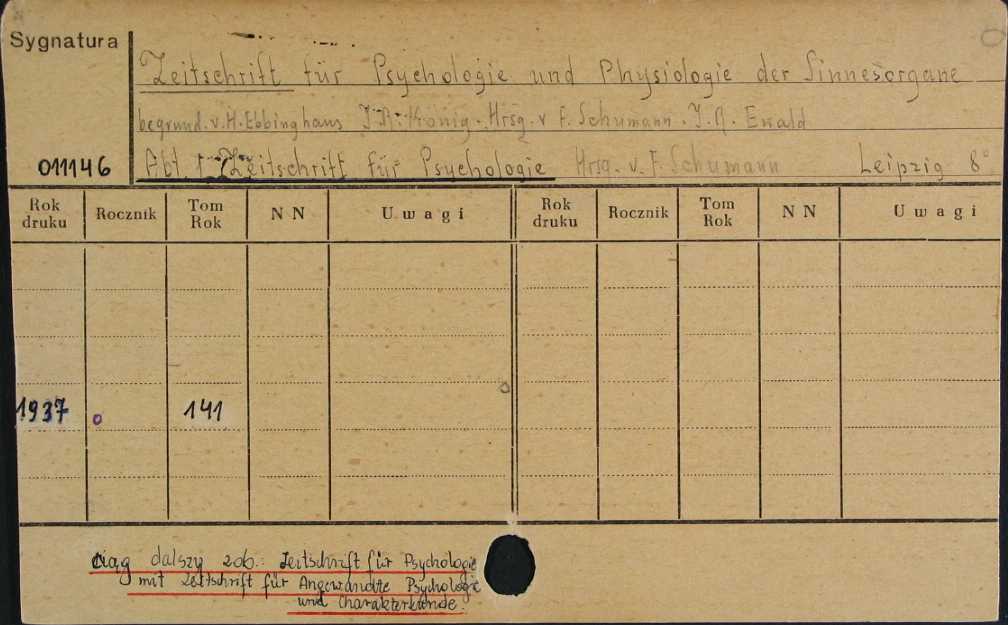 Sygnatura
Zeitschrift für Psychologie und Physiologie der Sinnesorgane
begrund. v. H. Ebbinghaus J. A. König. Hrsg. v F. Schumann. J. R. Ewald
011146 Abt. 1. Zeitschrift für Psychologie Hrsg. v. F. Schumann Leipzig 8°
Rok druku Rocznik Tom Rok NN Uwagi Rok druku Rocznik Tom Rok NN Uwagi
1937 141
ciąg dalszy zob.: Zeitschrift für Psychologie
mit Zeitschrift für Angewandte Psychologie
und Charakterkunde.